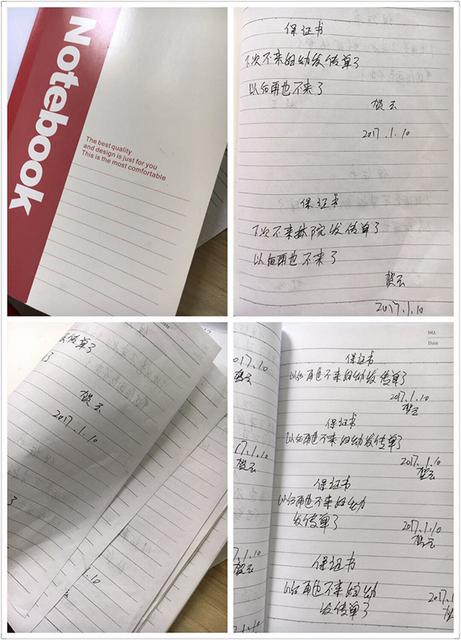 Notebook
The best quality
and design is just for you
This is the most comfortable
保证书
下次不来妇幼发传单了
以后再也不来了
贺云
2017.1.10
保证书
下次不来林院发传单了
以后再也不来了
贺云
2017.1.10
传单了
了
贺云
2017.1.10
了
1.10
云
017.1.10
贺云
17.1.10
贺云
7.1.10
贺云
NO.
Date
保证书
以后再也不来妇幼发传单了
2017.1.10
贺云
保证书
以后再也不来妇幼发传单了
2017.1.10
贺云
保证书
以后再也不来妇幼
发传单了
2017.1.10
贺云
保证书
以后再也不来妇幼
发传单了
2017.1
贺